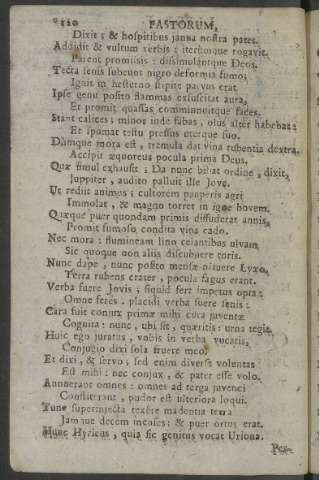 120 FASTORUM,
Dixit; & hospitibus janua nostra patet.
Addidit & vultum verbis: iterumque rogavit.
Parent promissis: dissimulantque Deos.
Tecta senis subeunt nigro deformia fumo;
Ignis in hesterno stipite parvus erat.
Ipse genu posito flammas exsuscitat aura,
Et promit quassas comminuitque faces.
Stant calices; minor inde fabas, olus alter habebat:
Et spumat testu pressus uterque suo.
Dumque mora est, tremula dat vina rubentia dextra.
Accipit æquoreus pocula prima Deus.
Quæ simul exhausit; Da nunc bibat ordine, dixit,
Juppiter, audito palluit ille Jove.
Ut rediit animus; cultorem pauperis agri
Immolat, & magno torret in igne bovem.
Quæque puer quondam primis diffuderat annis,
Promit fumoso condita vina cado.
Nec mora: flumineam lino celantibus ulvam,
Sic quoque non altis discubuere toris.
Nunc dape, nunc posito mensæ nituere Lyæo,
Terra rubens crater, pocula fagus erant.
Verba fuere Jovis; siquid fert impetus opta:
Omne feres. placidi verba fuere senis:
Cara fuit conjux primæ mihi cura juventæ
Cognita: nunc, ubi sit, quæritis: urna tegit.
Huic ego juratus, vobis in verba vocatis,
Conjugio dixi sola fruere meo.
Et dixi, & servo; sed enim diversa voluntas
Est mihi: nec conjux, & pater esse volo.
Annuerant omnes: omnes ad terga juvenci
Constiterant, pudor est ulteriora loqui.
Tunc superinjecta texere madentia terra
Jamque decem menses: & puer ortus erat.
Hunc Hyrieus, quia sic genitus vocat Uriona.
Per-